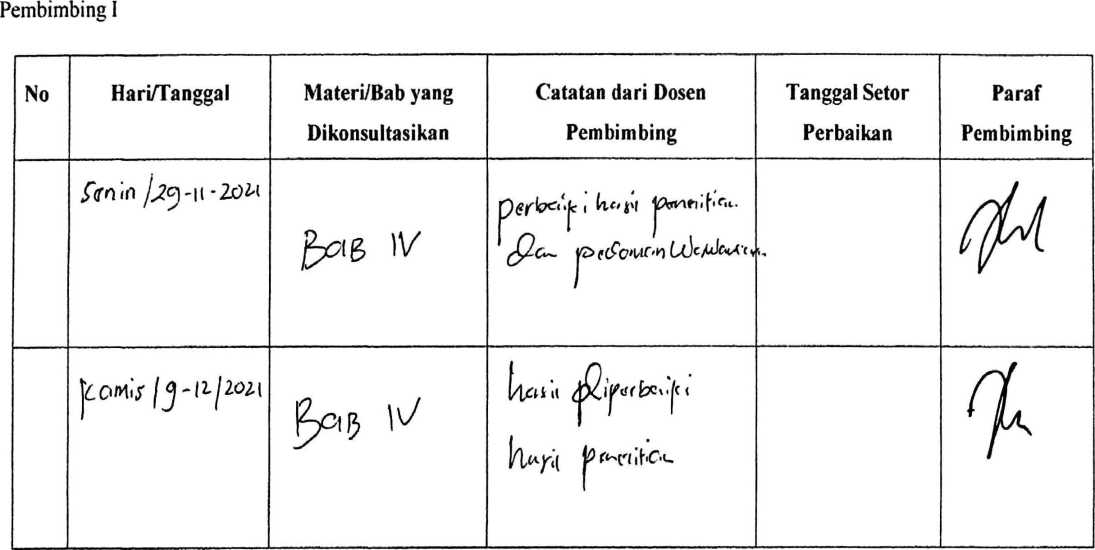 Pembimbing I
No
Hari/Tanggal
Materi/Bab yang
Dikonsultasikan
Catatan dari Dosen
Pembimbing
Tanggal Setor
Perbaikan
Paraf
Pembimbing
Senin /29-11-2021
BaB IV
perbaiki hasil penelitian.
dan pedoman Wawancara.
Kamis /9-12/2021
BaB IV
hasil diperbaiki
hasil penelitian